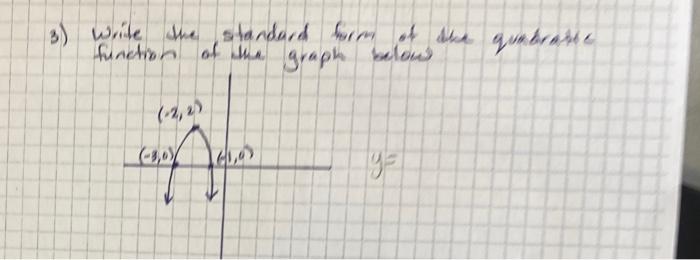 3) Write the standard form of the quadratic
function of the graph below
(-2,2)
(-3,0) (-1,0)
y=